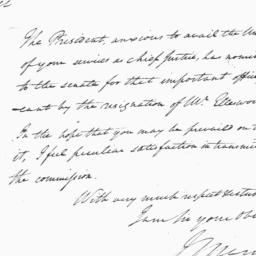 The President, anxious to avail the Un
of your services as Chief Justice, has nomin
to the senate for that important office
cant by the resignation of Mr. Ellswor
In the hope that you may be prevailed on to
it, I feel peculiar satisfaction in transmit
the commission.
With very much respect
I am